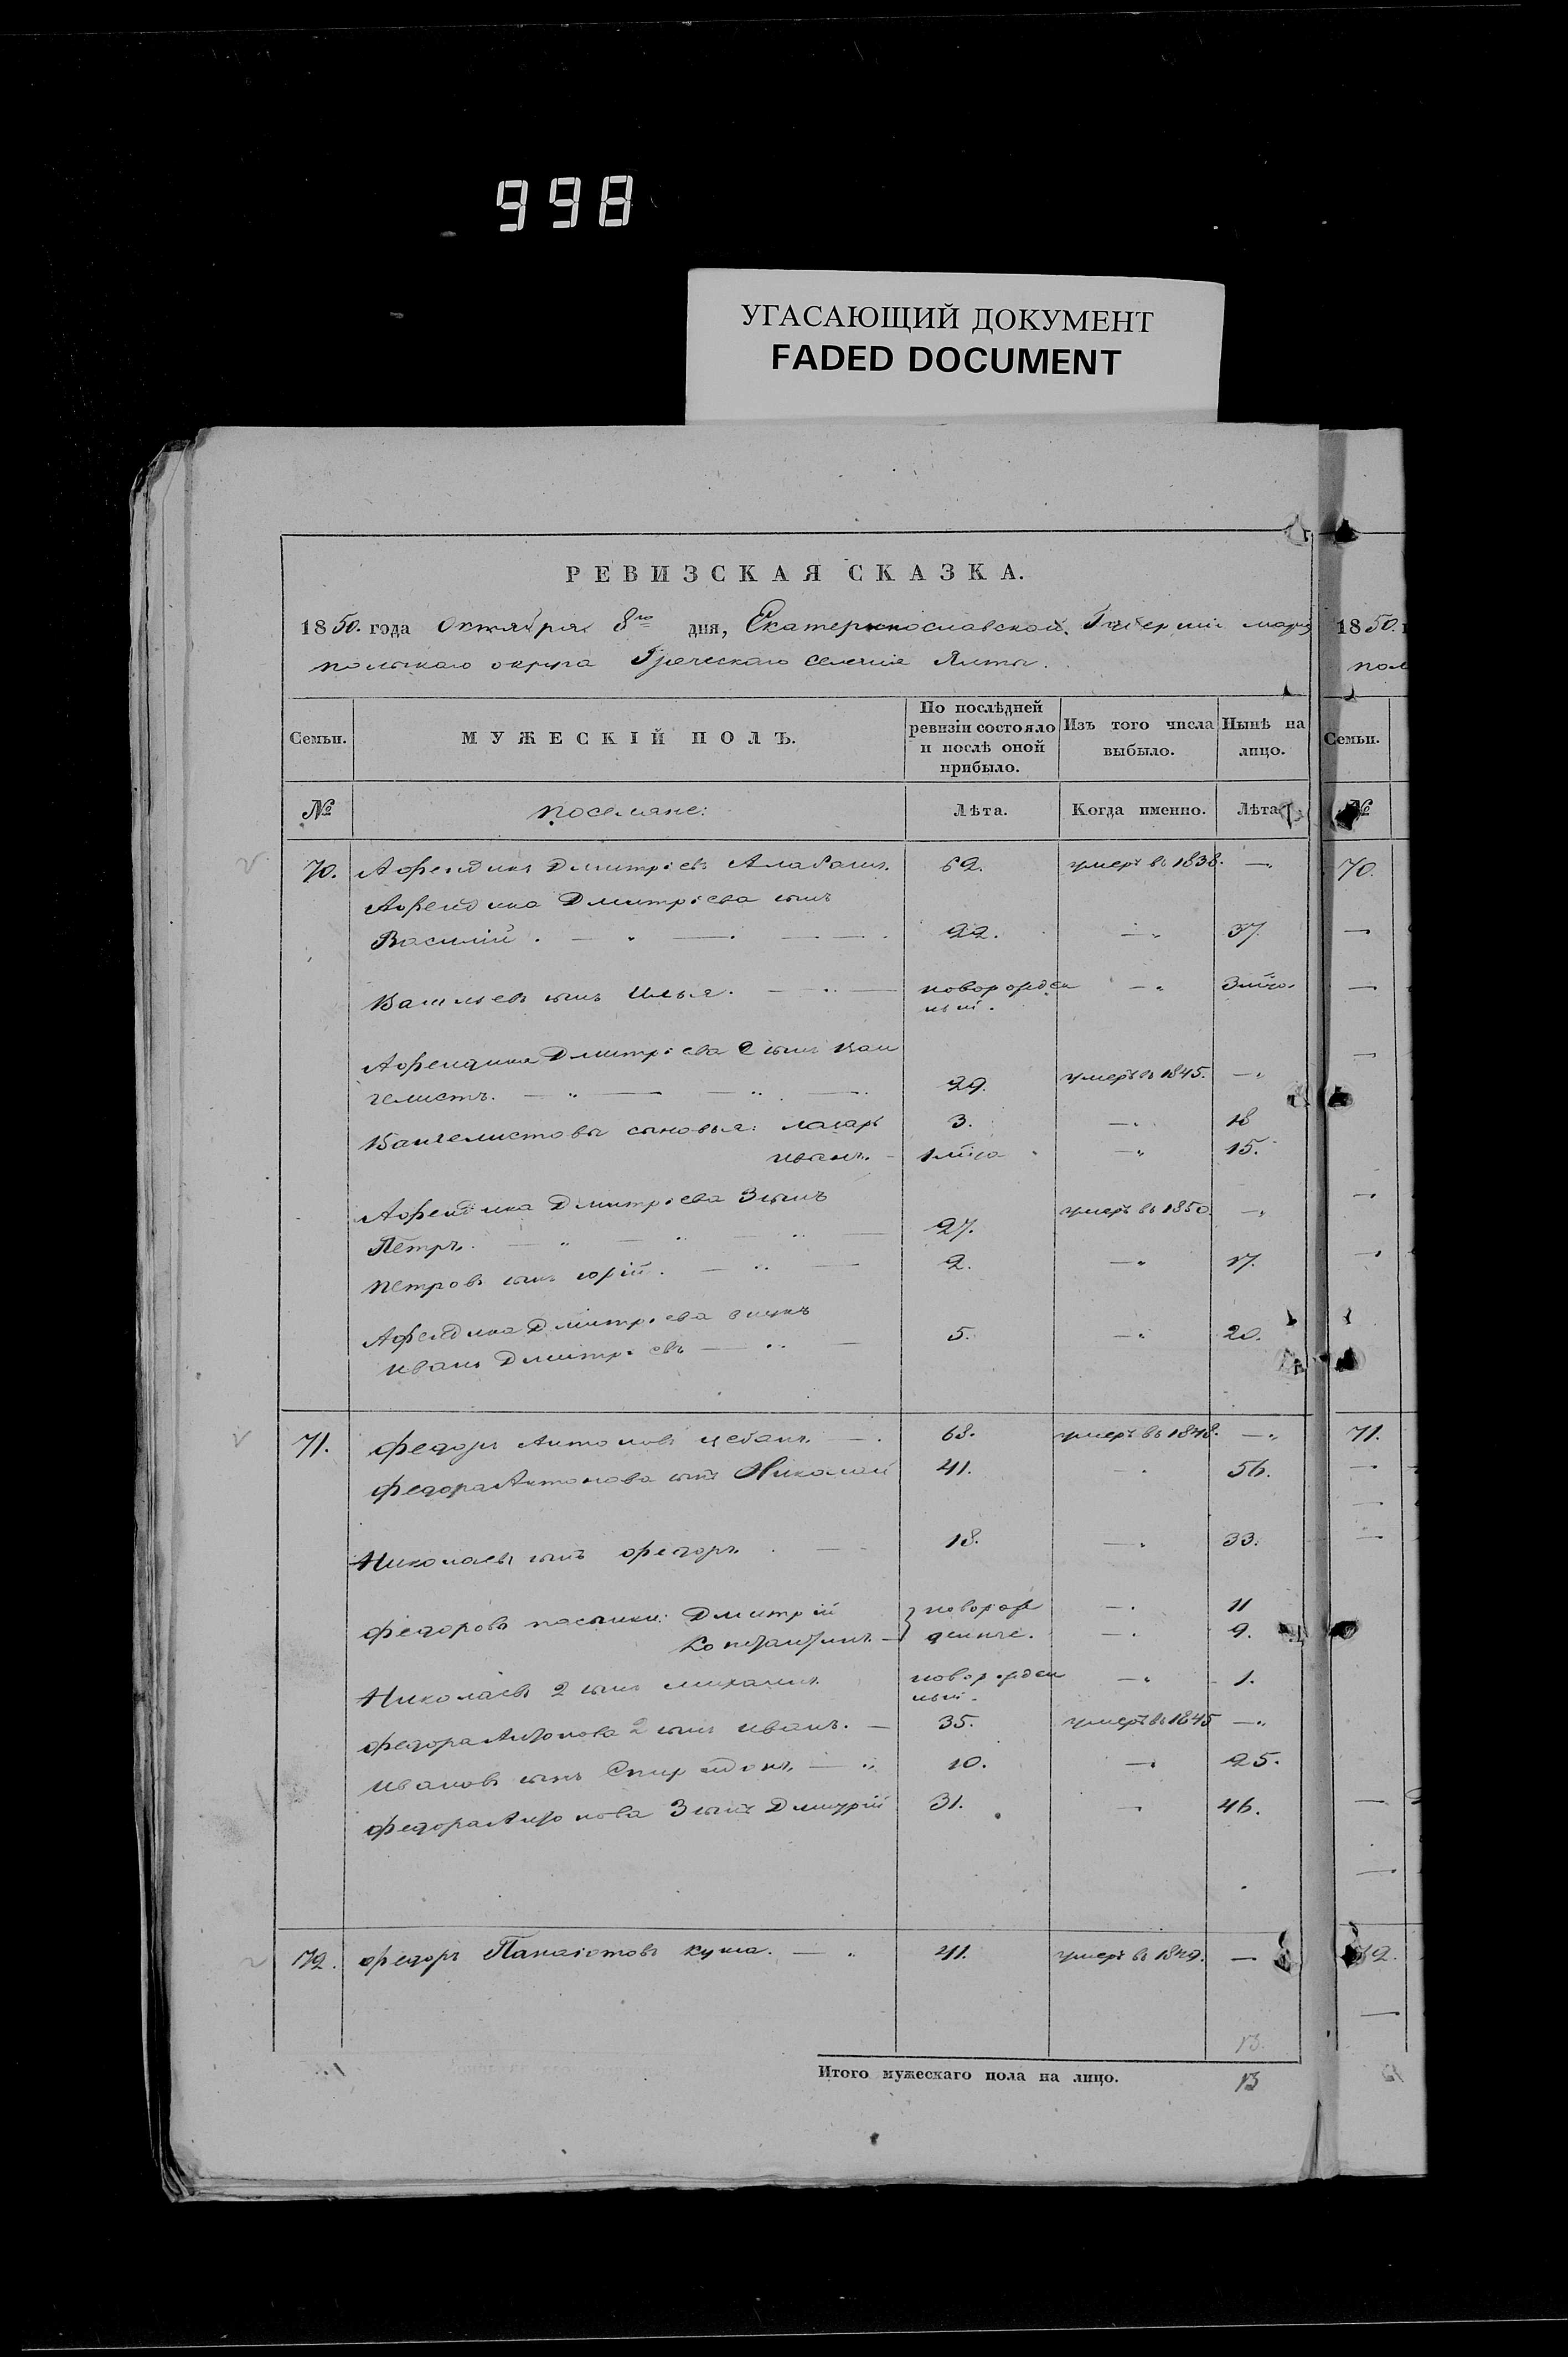 998
УГАСАЮЩИЙ ДОКУМЕНТ
FADED DOCUMENT
РЕВИЗСКАЯ СКАЗКА.
1850. года Октября 8го дня, Екатеринославской Губерніи мариу
польскаго округа Греческаго селенія Ялты.
Семьи. МУЖЕСКІЙ ПОЛЪ. По послѣдней ревизіи состояло и послѣ оной прибыло. Изъ того числа выбыло. Нынѣ на лицо.
№ поселяне: Лѣта. Когда именно. Лѣта
70. Афендикъ Дмитріевъ 62. умеръ въ 1838. —
Афендика Дмитріева сынъ
Василій. 22. — 37.
Васильевъ сынъ Илья. новорожден — 3
ный.
Афендика Дмитріева 2 сынъ Ван
гелистъ. 29. умеръ въ 1845. —
Вангелистовы сыновья: лазарь 3. — 18
иванъ. 1 — 15.
Афендика Дмитріева 3 сынъ умеръ въ 1850 —
Петръ. 27.
Петровъ сынъ юрій. 2. — 17.
Афендика Дмитріева внукъ
иванъ Дмитріевъ 5. — 20.
71. федоръ Антоновъ цебанъ. 68. умеръ въ 1848. —
федора Антонова сынъ Николай 41. — 56.
Николаевъ сынъ федоръ. 18. — 33.
федоровъ пасынки: Дмитрій новорож — 11
Константинъ денные. — 9.
Николаевъ 2 сынъ михаилъ новорожден — 1.
ный.
федора Антонова 2 сынъ иванъ. 35. умеръ въ 1845 —
ивановъ сынъ Спиридонъ 10. — 25.
федора Антонова 3 сынъ Дмитрій 31. — 46.
72. федоръ Панаіотовъ куша. 41. умеръ въ 1849. —
13.
Итого мужескаго пола на лицо. 13
1850.
Семьи.
№
70.
71.